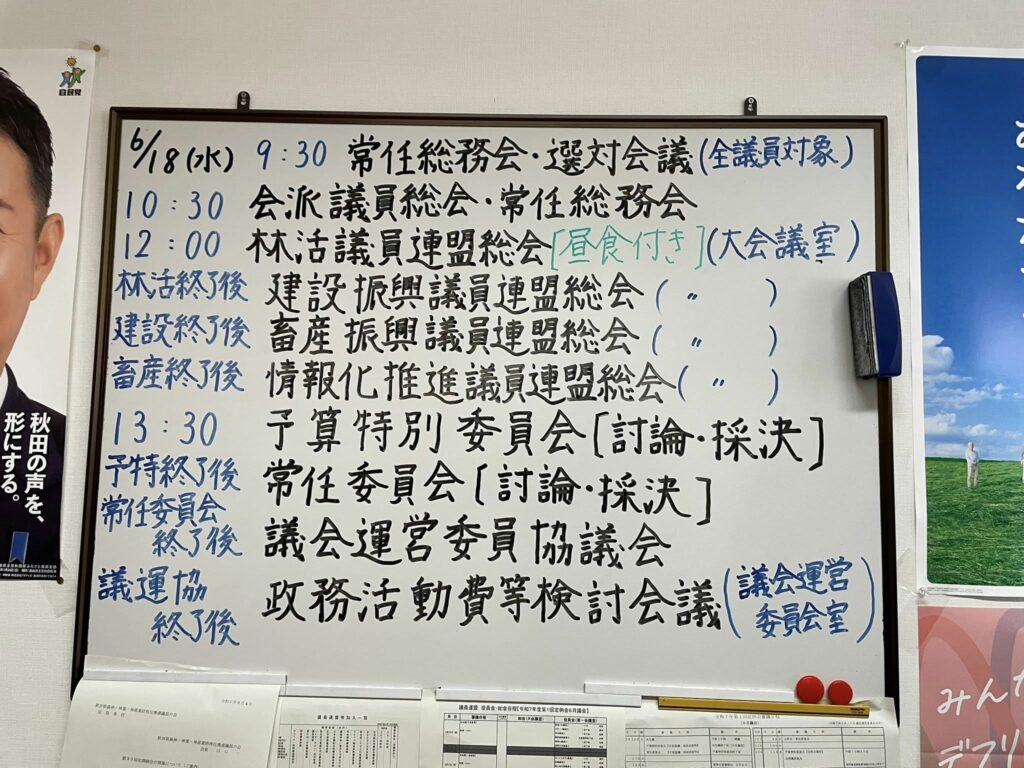 自民党
秋田の声を、
形にする。
6/18(水) 9:30 常任総務会・選対会議(全議員対象)
10:30 会派議員総会・常任総務会
12:00 林活議員連盟総会[昼食付き](大会議室)
林活終了後 建設振興議員連盟総会(〃)
建設終了後 畜産振興議員連盟総会(〃)
畜産終了後 情報化推進議員連盟総会(〃)
13:30 予算特別委員会[討論・採決]
予特終了後 常任委員会[討論・採決]
常任委員会
終了後 議会運営委員協議会
議運協
終了後 政務活動費等検討会議(議会運営
委員会室)
議員連盟等加入一覧
議員連盟 役員会・総会日程【令和7年度第1回定例会6月議会】
みん
デフリ